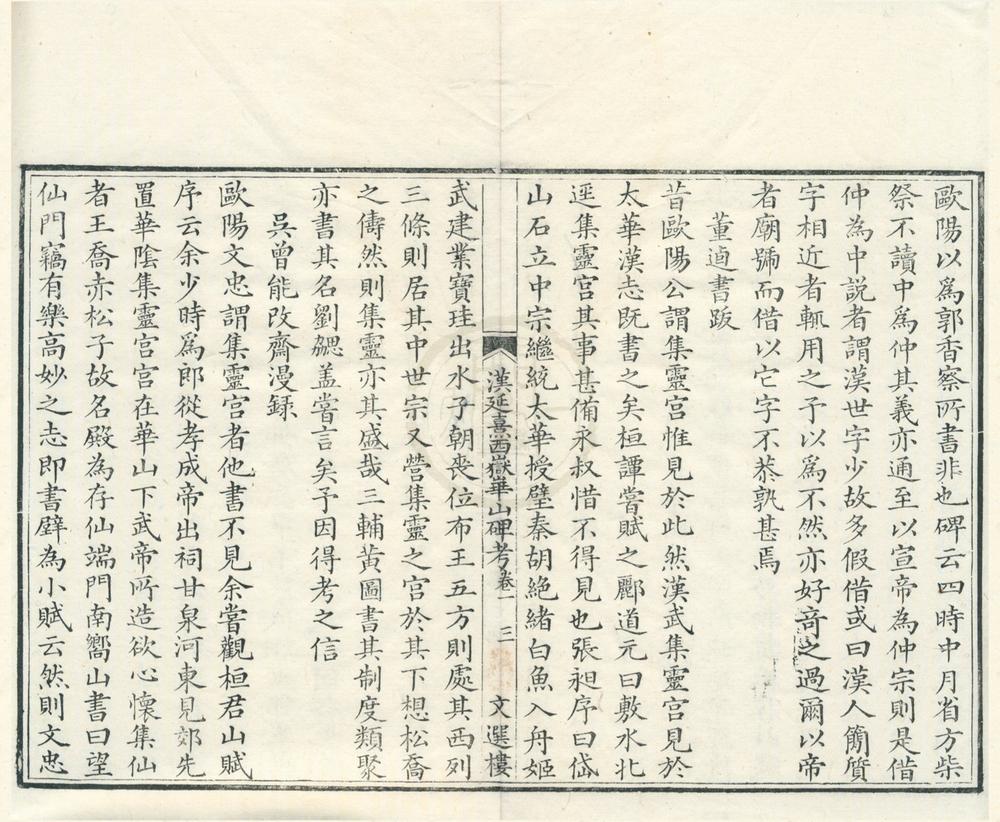 歐陽以爲郭香察所書非也碑云四時中月省方柴
祭不讀中爲仲其義亦通至以宣帝為仲宗則是借
仲為中説者謂漢世字少故多假借或曰漢人簡質
字相近者輒用之予以爲不然亦好竒之過爾以帝
者廟號而借以它字不恭孰甚焉
董逌書跋
昔歐陽公謂集靈宫惟見於此然漢武集靈宫見於
太華漢志既書之矣桓譚嘗賦之酈道元曰敷水北
逕集靈宫其事甚備永叔惜不得見也張昶序曰岱
山石立中宗繼統太華授璧秦胡絶緒白魚入舟姬
漢延熹西嶽華山碑考卷一
三
文選樓
武建業寶珪出水子朝喪位布王五方則處其西列
三條則居其中世宗又營集靈之宫於其下想松喬
之儔然則集靈亦其盛哉三輔黄圖書其制度類聚
亦書其名劉勰盖嘗言矣予因得考之信
吳曾能改齋漫録
歐陽文忠謂集靈宫者他書不見余嘗觀桓君山賦
序云余少時爲郎從孝成帝出祠甘泉河東見郊先
置華陰集靈宫宫在華山下武帝所造欲心懷集仙
者王喬赤松子故名殿為存仙端門南嚮山書曰望
仙門竊有樂高妙之志即書壁為小賦云然則文忠